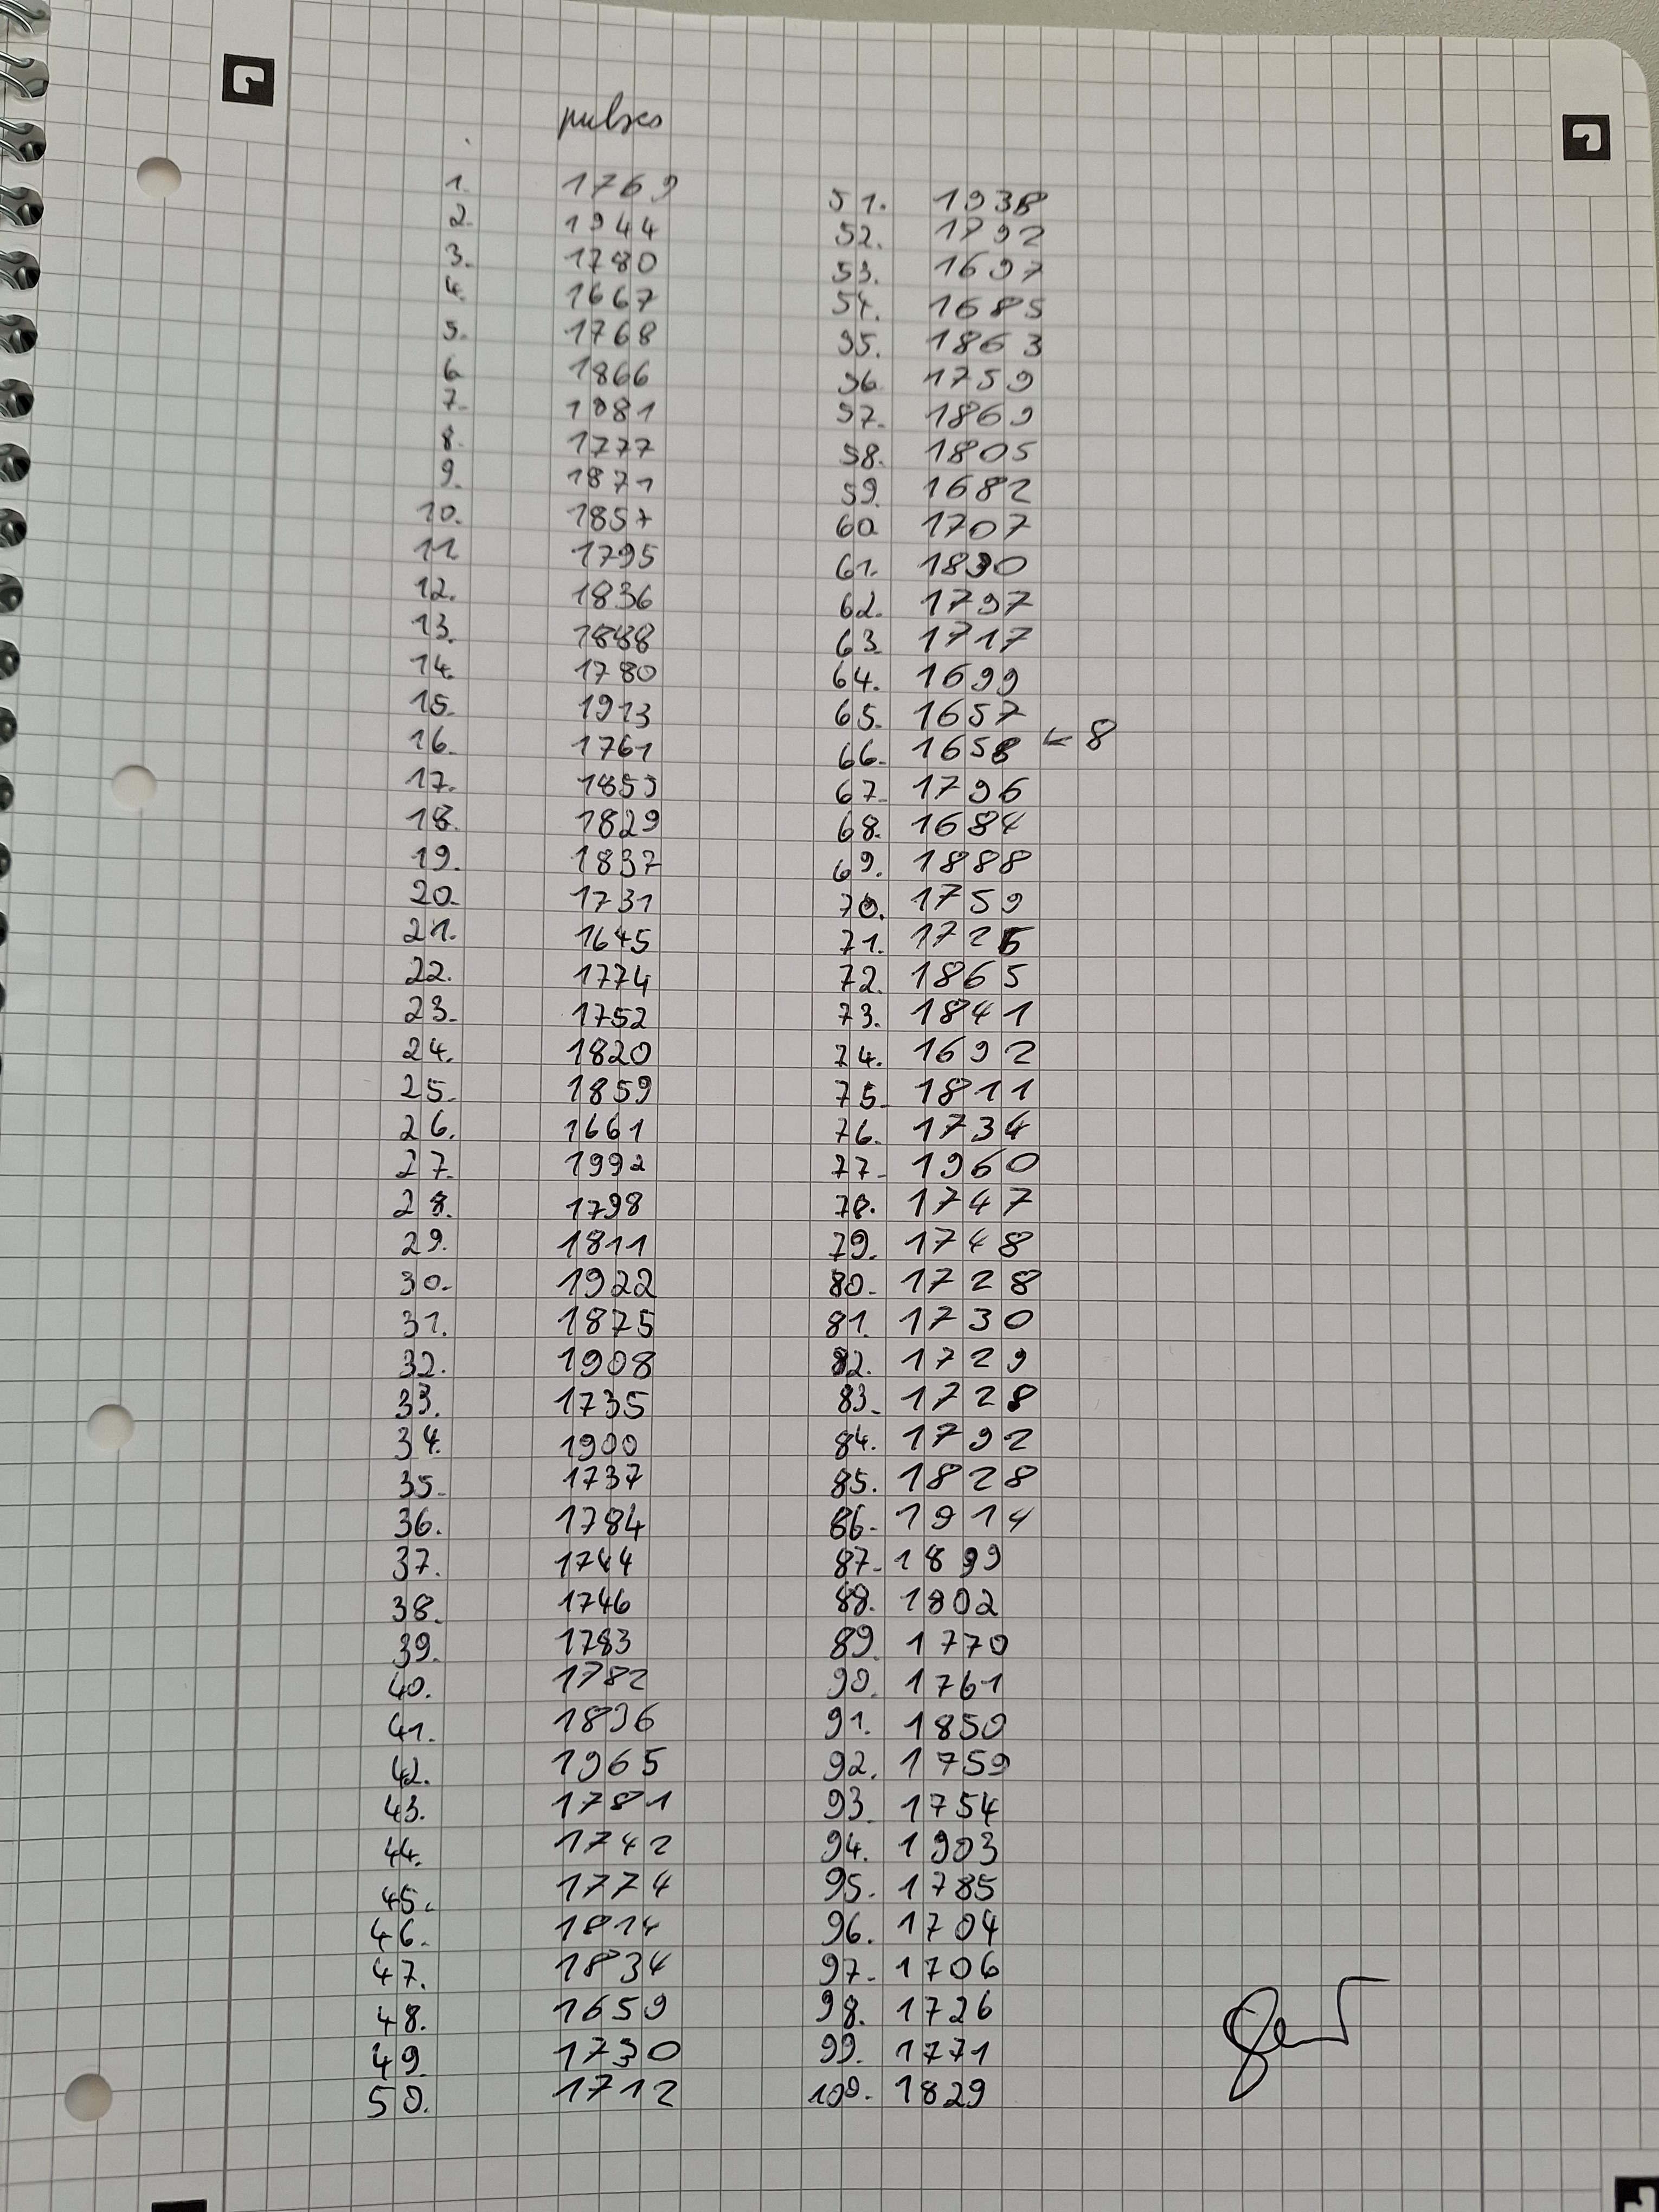 pulses
1. 1769
2. 1944
3. 1780
4. 1667
5. 1768
6. 1866
7. 1981
8. 1777
9. 1871
10. 1857
11. 1795
12. 1836
13. 1888
14. 1780
15. 1913
16. 1761
17. 1859
18. 1829
19. 1837
20. 1731
21. 1645
22. 1774
23. 1752
24. 1820
25. 1859
26. 1661
27. 1992
28. 1798
29. 1811
30. 1922
31. 1875
32. 1908
33. 1735
34. 1900
35. 1737
36. 1784
37. 1744
38. 1746
39. 1783
40. 1782
41. 1836
42. 1965
43. 1781
44. 1742
45. 1774
46. 1814
47. 1834
48. 1659
49. 1730
50. 1712
51. 1938
52. 1792
53. 1697
54. 1685
55. 1863
56. 1759
57. 1869
58. 1805
59. 1682
60. 1707
61. 1830
62. 1797
63. 1717
64. 1699
65. 1657
66. 1658 ← 8
67. 1796
68. 1684
69. 1888
70. 1759
71. 1725
72. 1865
73. 1841
74. 1692
75. 1811
76. 1734
77. 1960
78. 1747
79. 1748
80. 1728
81. 1730
82. 1729
83. 1728
84. 1792
85. 1828
86. 1914
87. 1899
88. 1802
89. 1770
90. 1761
91. 1850
92. 1759
93. 1754
94. 1903
95. 1785
96. 1704
97. 1706
98. 1726
99. 1771
100. 1829